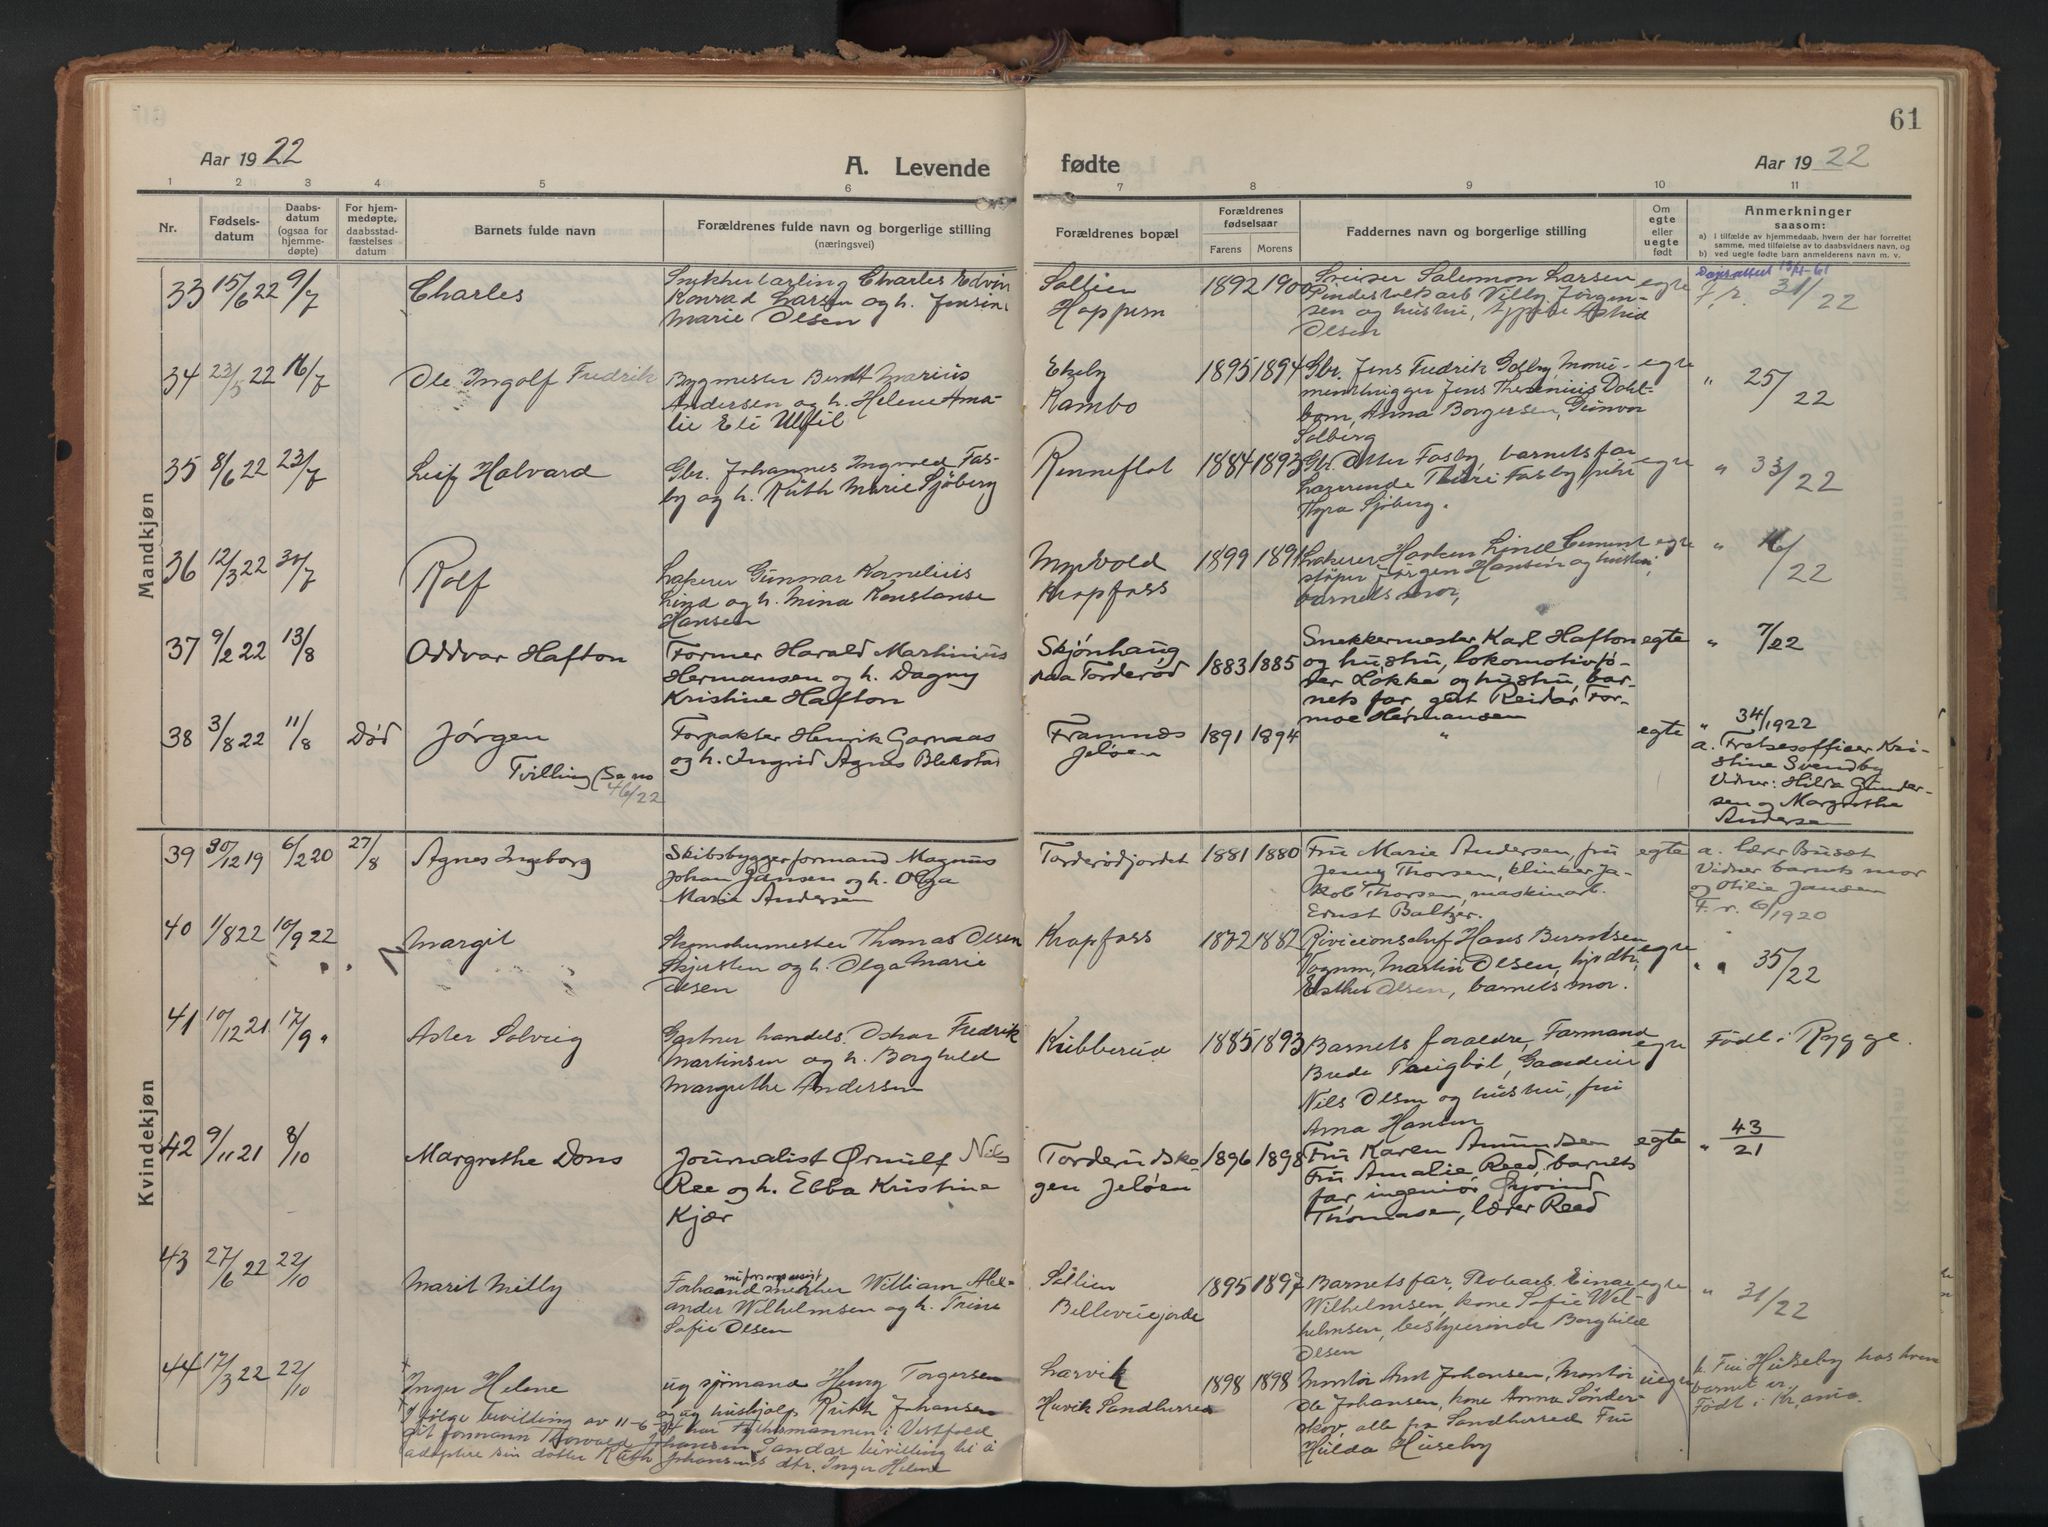 61
Aar 1922
A. Levende
fødte
Aar 1922
1 2 3 4 5 6 7 8 9 10 11
Nr.
Fødsels-
datum
Daabs-
datum
(ogsaa for
hjemme-
døpte)
For hjem-
medøpte,
daabsstad-
fæstelses
datum
Barnets fulde navn
Forældrenes fulde navn og borgerlige stilling
(næringsvei)
Forældrenes bopæl
Forældrenes
fødselsaar
Farens Morens
Faddernes navn og borgerlige stilling
Om
egte
eller
uegte
født
Anmerkninger
saasom:
a) I tilfælde av hjemmedaab, hvem der har forrettet
samme, med tilføielse av to daabsvidners navn, og
b) ved uegte fødte barn anmelderens navn m. v.
Mandkjøn
33 15/6 22 9/7 Charles
Charles Edvin
Konrad Larsen og h. Jensine
Marie Olsen
Sollien
Hoppern
1892 1900
Salomon Larsen
Villy Jørgen-
sen og hustru, Astrid
Olsen
egte
F. r. 31/22
34 23/5 22 16/7 Ole Ingolf Fredrik
Bygmester Berndt Marius
Andersen og h. Helene Ama-
lie Eli
Ekeby
Kambo
1895 1894
Gbr. Jens Fredrik
Jens
Anna Borgersen, Gunvor
Solberg
egte
" 25/22
35 8/6 22 23/7 Leif Halvard
Gbr. Johannes Ingvald Fas-
by og h. Ruth Marie Sjöberg
Renneflot
1884 1893
Gbr. Fasby, barnets far
Fasby
Thyra Sjöberg.
egte
" 33/22
36 12/3 22 30/7 Rolf
Lakerer Gunnar Kornelius
Lind og h. Mina Konstanse
Hansen
Myrvold
Krapfoss
1899 1891
Lakerer Haaken Lind Cement
støper Jørgen Hansen og hustru,
barnets mor,
egte
" 16/22
37 9/2 22 13/8 Oddvar Hafton
Former Harald Martinius
Hermansen og h. Dagny
Kristine Hafton
Skjønhaug
paa Torderød
1883 1885
Snekkermester Karl Hafton
og hustru, lokomotivfø-
rer Løkke og hustru, bar-
nets far, gut Reidar Tor-
moe Hermansen
egte
" 7/22
38 3/8 22 11/8 Død Jørgen
Tvilling
Forpakter Henrik Garnaas
og h. Ingrid Agnes Blekstad
Framnes
Jeløen
1891 1894
"
egte
" 34/1922
a. Frelsesofficer Kri-
stine Svendby
Vidner: Hilda Gunder-
sen og Margrethe
Andersen
Kvindekjøn
39 30/12 19 6/2 20 27/8 Agnes Ingeborg
Skibsbyggerformand Magnus
Johan Jansen og h. Olga
Marie Andersen
Torderødjordet
1881 1880
Fru Marie Andersen, fru
Jenny Thorsen, klinker Ja-
kob Thorsen, maskinarb.
Ernst Baltzer.
egte
a. lærer Buset
Vidner barnets mor
og Otilie Jansen
F. r. 6/1920
40 1/8 22 10/9 22 Margit
Skomakermester Thomas Olsen
og h. Olga Marie
Olsen
Krapfoss
1872 1882
Hans Berntsen
Martin Olsen,
Esther Olsen, barnets mor.
egte
" " 35/22
41 10/12 21 17/9 " Aster Solveig
Gartner handels. Oskar Fredrik
Martinsen og h. Borghild
Margrethe Andersen
Kubberud
1885 1893
Barnets foraldre, Formand
Nils Olsen og hustru, fru
Anna Hansen
egte
Født i Rygge.
42 9/11 21 8/10 Margrethe Dons
Journalist Ørnulf Nils
Ree og h. Ebba Kristine
Kjær
Torderudsko-
gen Jeløen
1896 1898
Fru Karen Amundsen
Fru Amalie Reed, barnets
far, ingeniør Øyvind
Thomasen, lærer Reed
egte
" 43/21
43 27/6 22 22/10 Marit Milly
William Alex-
ander Wilhelmsen og h. Trine
Sofie Olsen
Sollien
Bellevuejorde
1895 1897
Barnets far, Einar
Wilhelmsen, kone Sofie Wil-
helmsen, Borghild
Olsen
egte
" 31/22
44 17/3 22 22/10 Inger Helene
ug sjømand Henry Torgersen
og ug hushjelp Ruth Johansen
Larvik
Sandherred
1898 1898
Montør Johansen, Montør
Ole Johansen, kone Anna Sønder-
skov, alle fra Sandherred Fru
Hulda Huseby
uegte
b. Fru Huseby hos hvem
barnet er.
Født i Kr.ania.
I følge bevilling av 11-6- har Fylkesmannen i Vestfold
gitt formann Torvald Johansen Sandar bevilling til å
adoptere sin datter Ruth Johansens dtr. Inger Helene